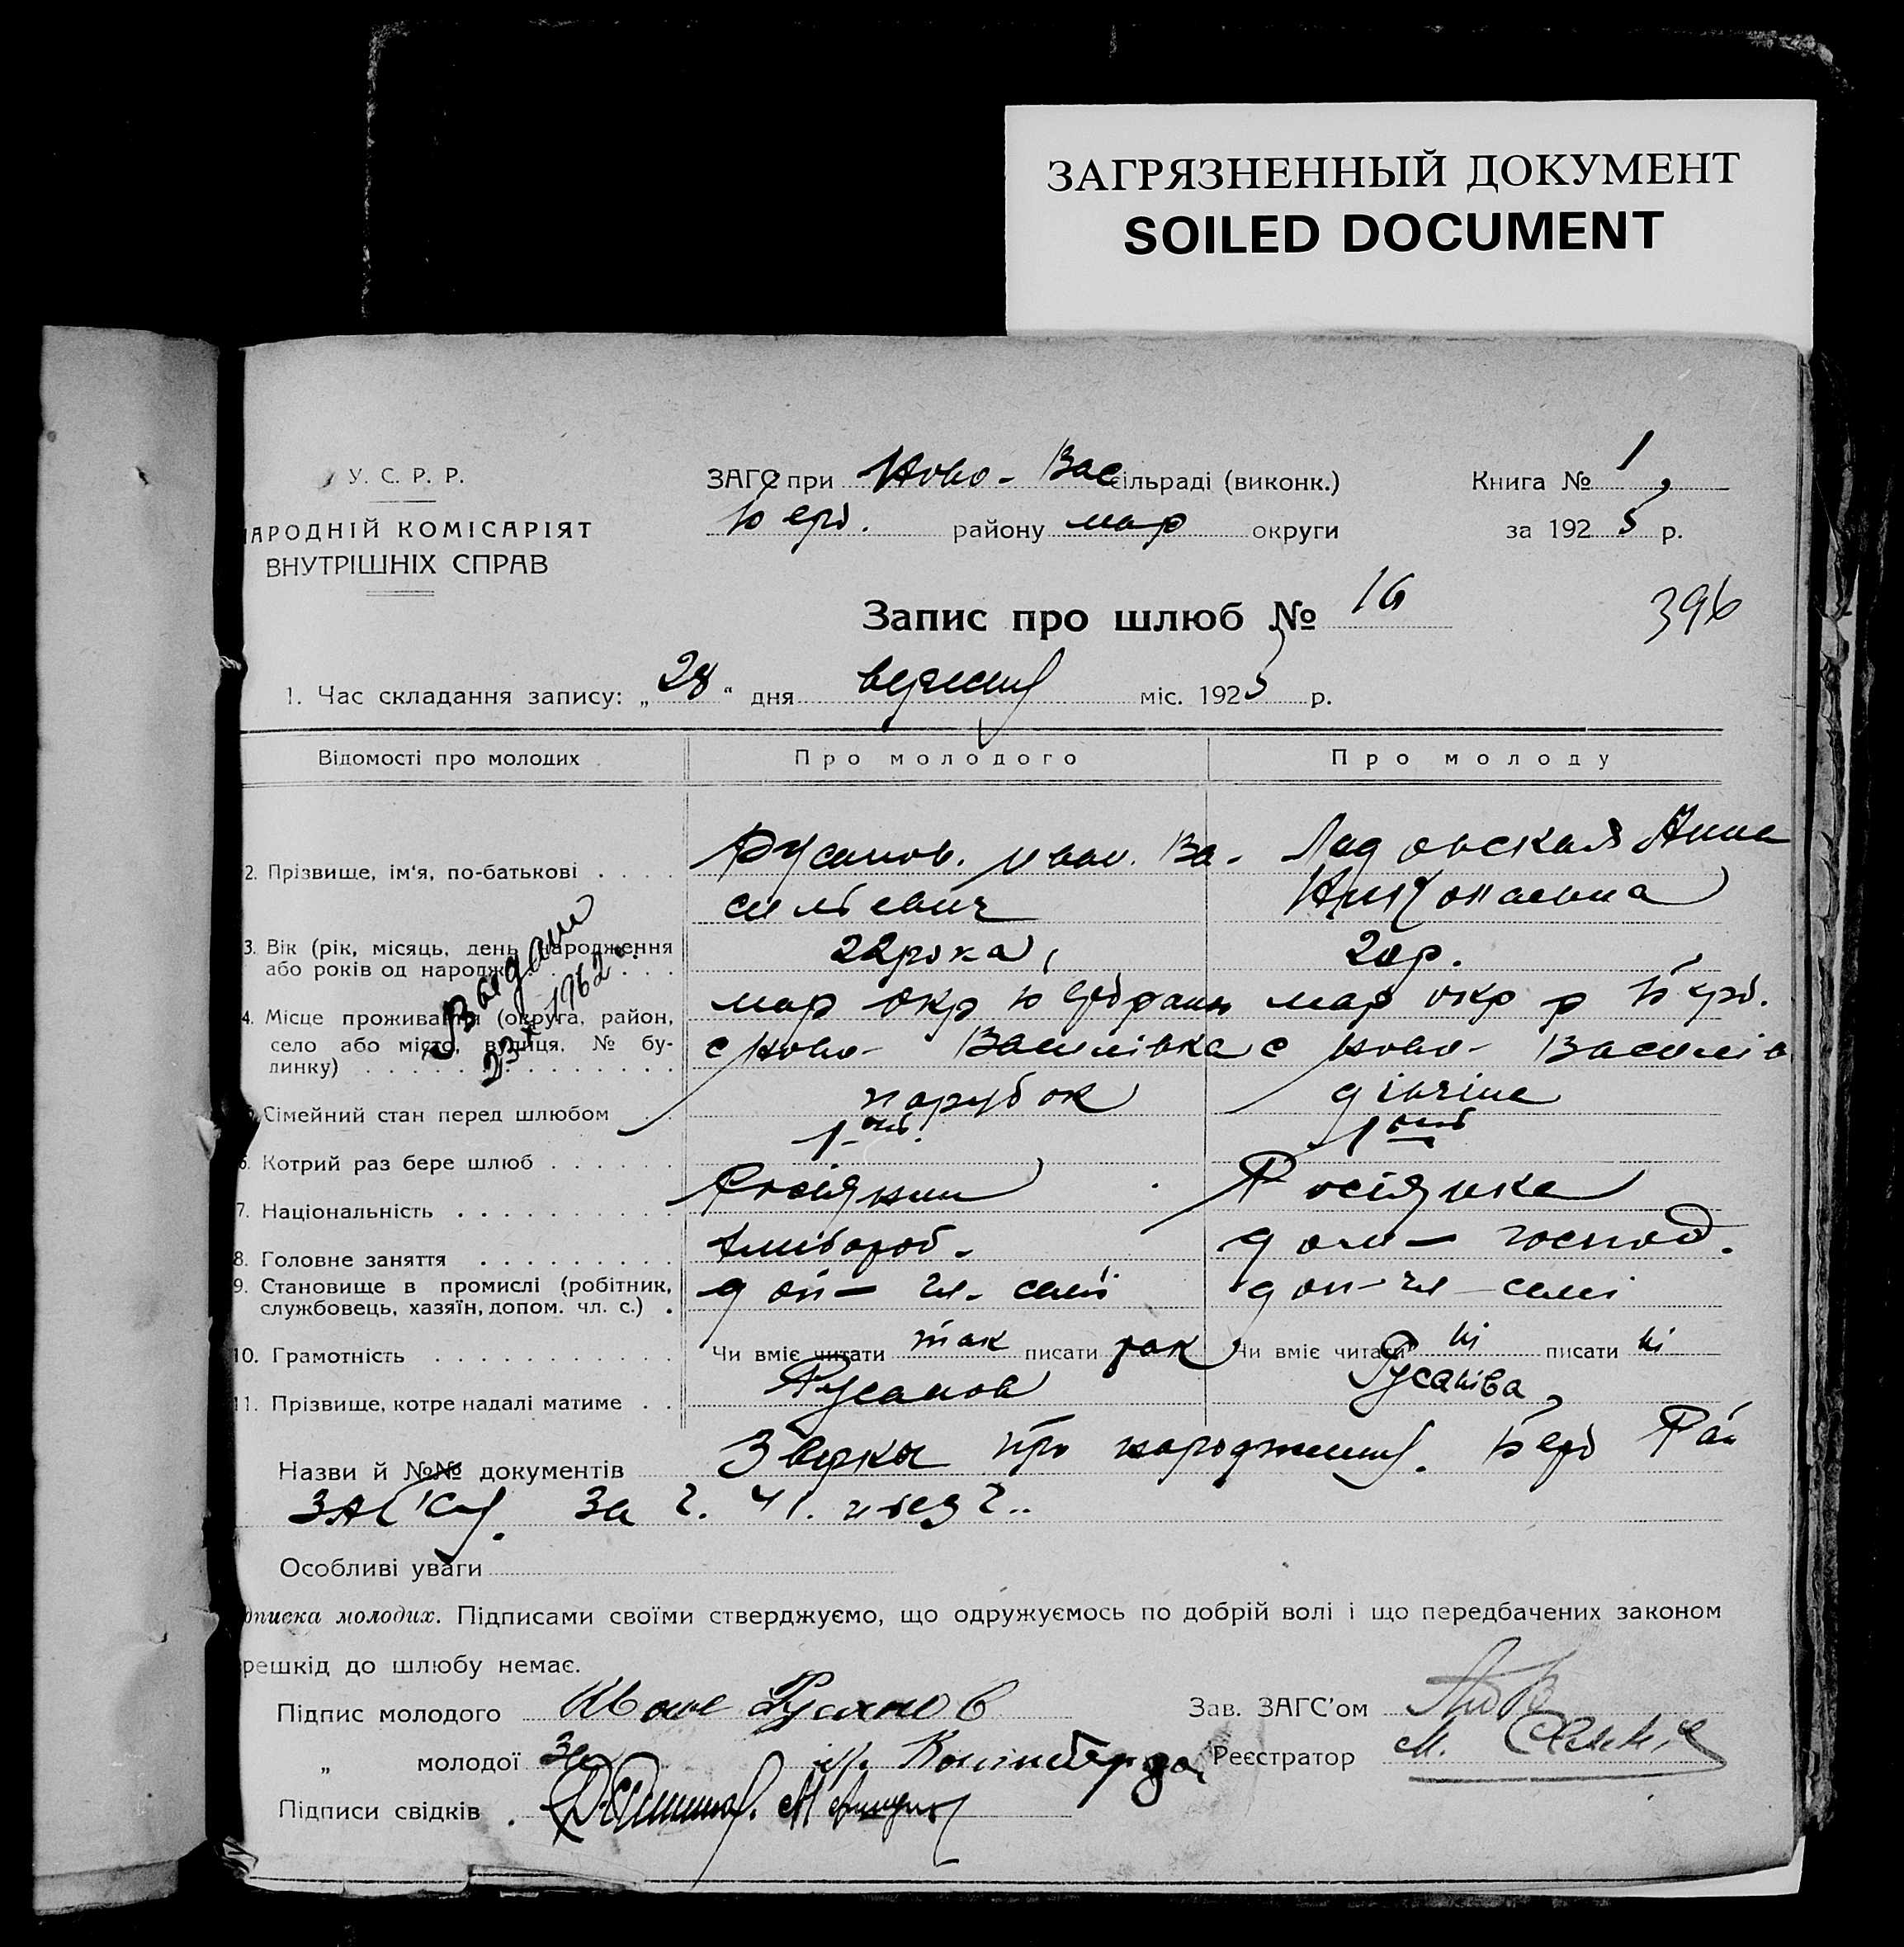 ЗАГРЯЗНЕННЫЙ ДОКУМЕНТ
SOILED DOCUMENT
У. С. Р. Р.
АРОДНІЙ КОМІСАРІЯТ
ВНУТРІШНІХ СПРАВ
ЗАГС при Ново- Вас сільраді (виконк.)
Берд. району мар округи
Книга № 1
за 1925 р.
Запис про шлюб № 16
396
1. Час складання запису: „28“ дня вересня міс. 1925 р.
Відомості про молодих Про молодого Про молоду
2. Прізвище, ім'я, по-батькові Русанов. Иван. Ва- Ладовская Анна
сильевич
3. Вік (рік, місяць, день народження 22 рока, 20 р.
або років од народж.
4. Місце проживання (округа, район, мар окр мар окр р Берд.
село або місто, вулиця. № бу- с Ново- Василівка с Ново- Василів
динку)
23 1962
5. Сімейний стан перед шлюбом парубок дівчина
6. Котрий раз бере шлюб 1-ий 1-ий
7. Національність Росіянин Росіянка
8. Головне заняття хлібороб. дом- господ.
9. Становище в промислі (робітник, доп- чл. семї доп- чл семі
службовець, хазяїн, допом. чл. с.)
10. Грамотність Чи вміє читати так писати так Чи вміє читати ні писати ні
11. Прізвище, котре надалі матиме Русанов Русанова
Назви й №№ документів про народження. Берд Рай
ЗАГСу. За ч. 41.
Особливі уваги
дписка молодих. Підписами своїми стверджуємо, що одружуємось по добрій волі і що передбачених законом
решкід до шлюбу немає.
Підпис молодого Иван Русанов Зав. ЗАГС'ом
„ молодої За Реєстратор М.
Підписи свідків